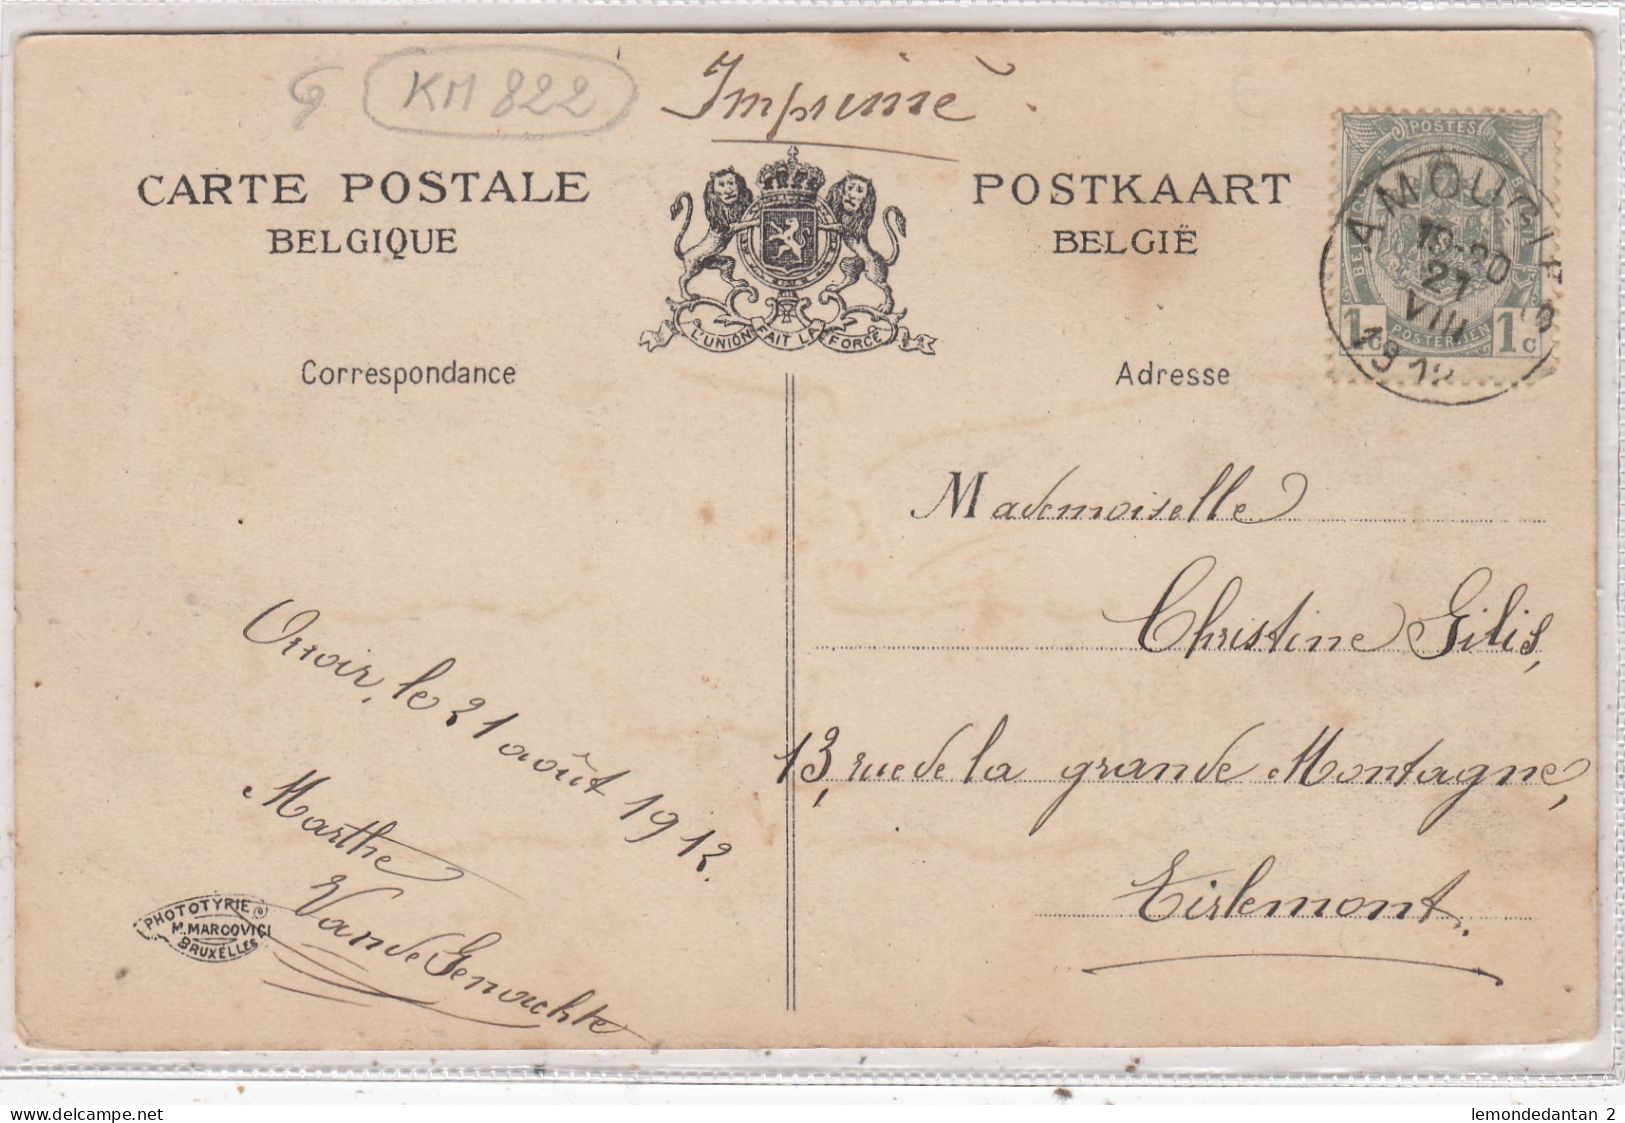 KM 822
Imprimé.
CARTE POSTALE
BELGIQUE
POSTKAART
BELGIË
L'UNION FAIT LA FORCE
POSTES
1c POSTERIJEN 1c
19-20
21
VIII
1912
Correspondance
Adresse
Mademoiselle
Christine Gilis,
13, rue de la grande Montagne,
Tirlemont.
le 21 août 1912.
Marthe
Van de Genachte
PHOTOTYPIE
M. MARCOVICI
BRUXELLES
New delcampe.net
lemondedantan 2